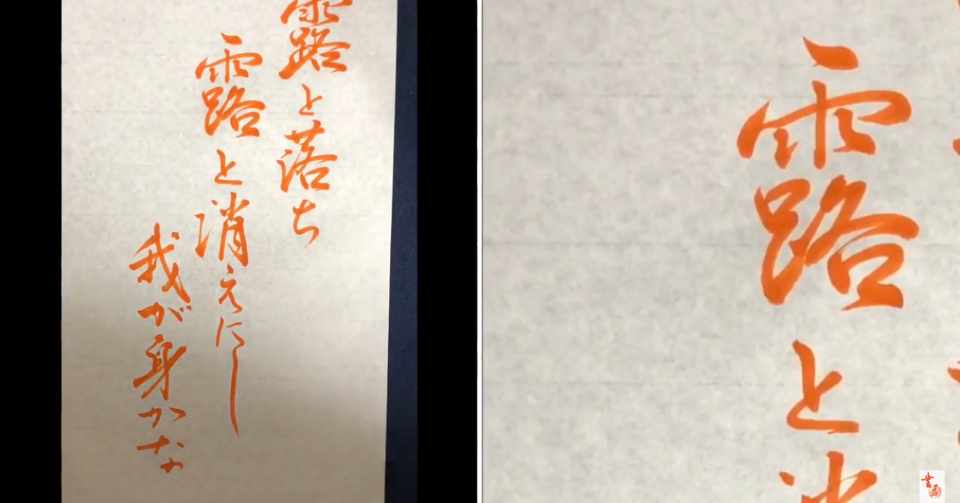 露と落ち
露と消えにし
我が身かな
露と